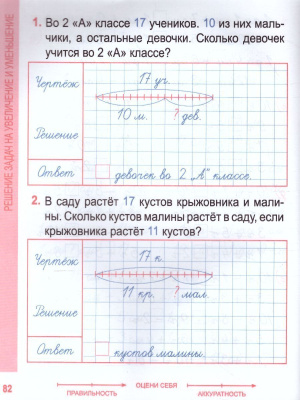 РЕШЕНИЕ ЗАДАЧ НА УВЕЛИЧЕНИЕ И УМЕНЬШЕНИЕ
1. Во 2 «А» классе 17 учеников. 10 из них маль-
чики, а остальные девочки. Сколько девочек
учится во 2 «А» классе?
Чертёж
17 уч.
10 м. ? дев.
Решение
Ответ девочек во 2 „А" классе.
2. В саду растёт 17 кустов крыжовника и мали-
ны. Сколько кустов малины растёт в саду, если
крыжовника растёт 11 кустов?
Чертёж
17 к.
11 кр. ? мал.
Решение
Ответ кустов малины.
82
ОЦЕНИ СЕБЯ
ПРАВИЛЬНОСТЬ АККУРАТНОСТЬ